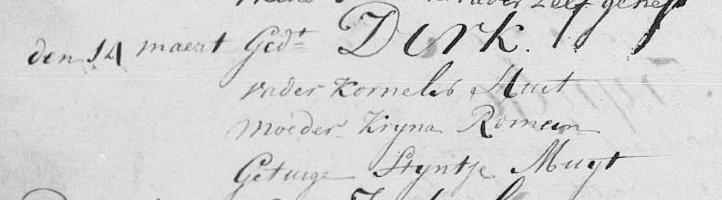 vader zelf gehef
den 14 maert Gedt Dirk.
vader Kornelis Muit
Moeder Kryna Romein
Getuige Styntje Muyt